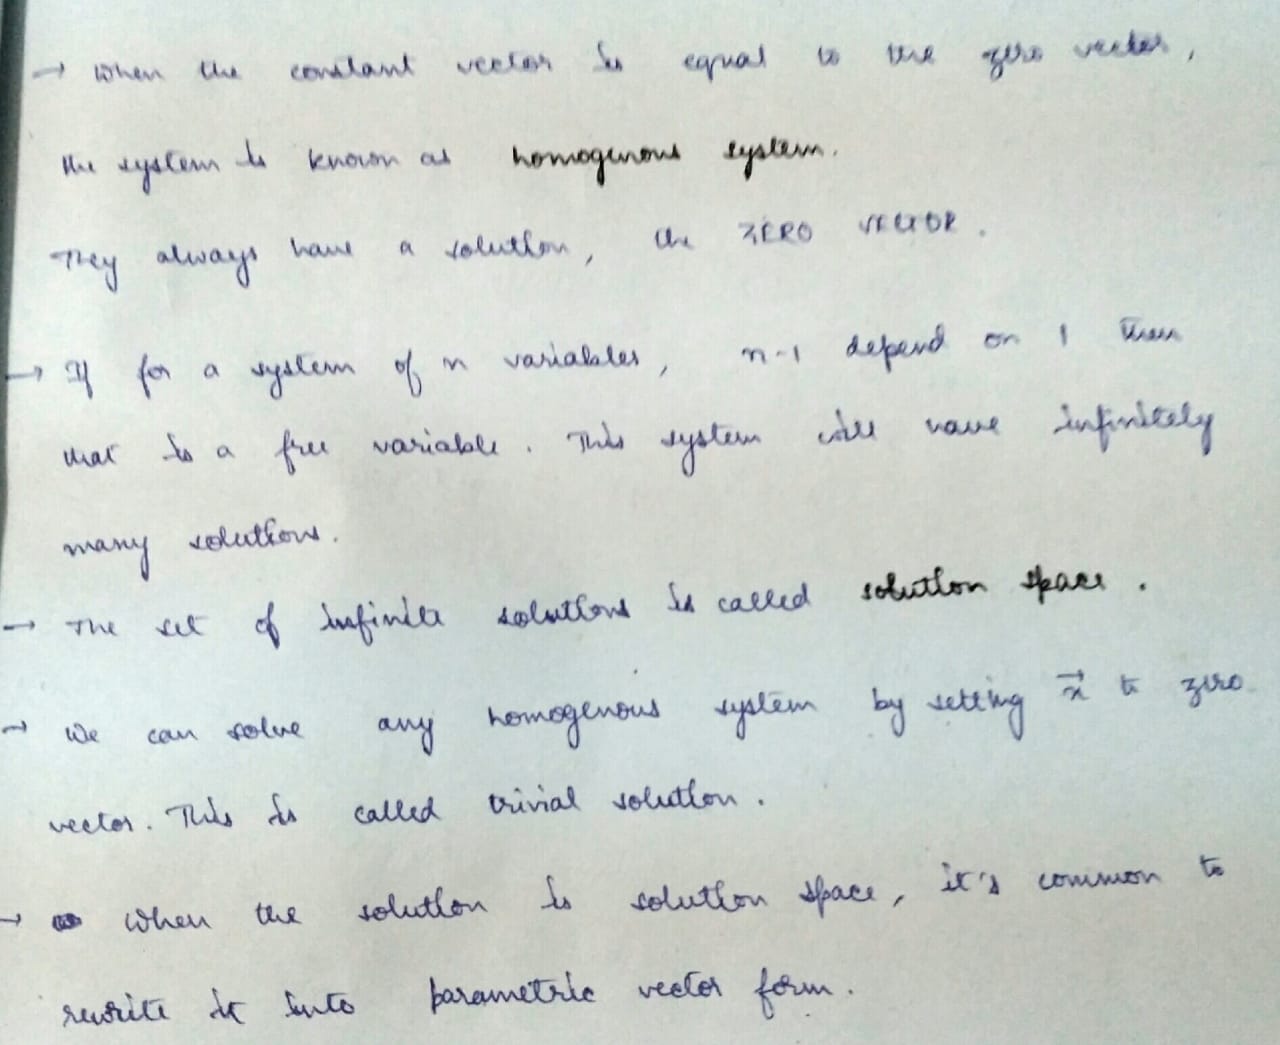 → When the constant vector is equal to the zero vector,
the system is known as homogenous system.
They always have a solution, the ZERO VECTOR.
→ If for a system of n variables, n-1 depend on 1 then
that is a free variable. This system will have infinitely
many solutions.
→ The set of infinite solutions is called solution space.
→ We can solve any homogenous system by setting x⃗ to zero
vector. This is called trivial solution.
→ When the solution is solution space, it's common to
rewrite it into parametric vector form.